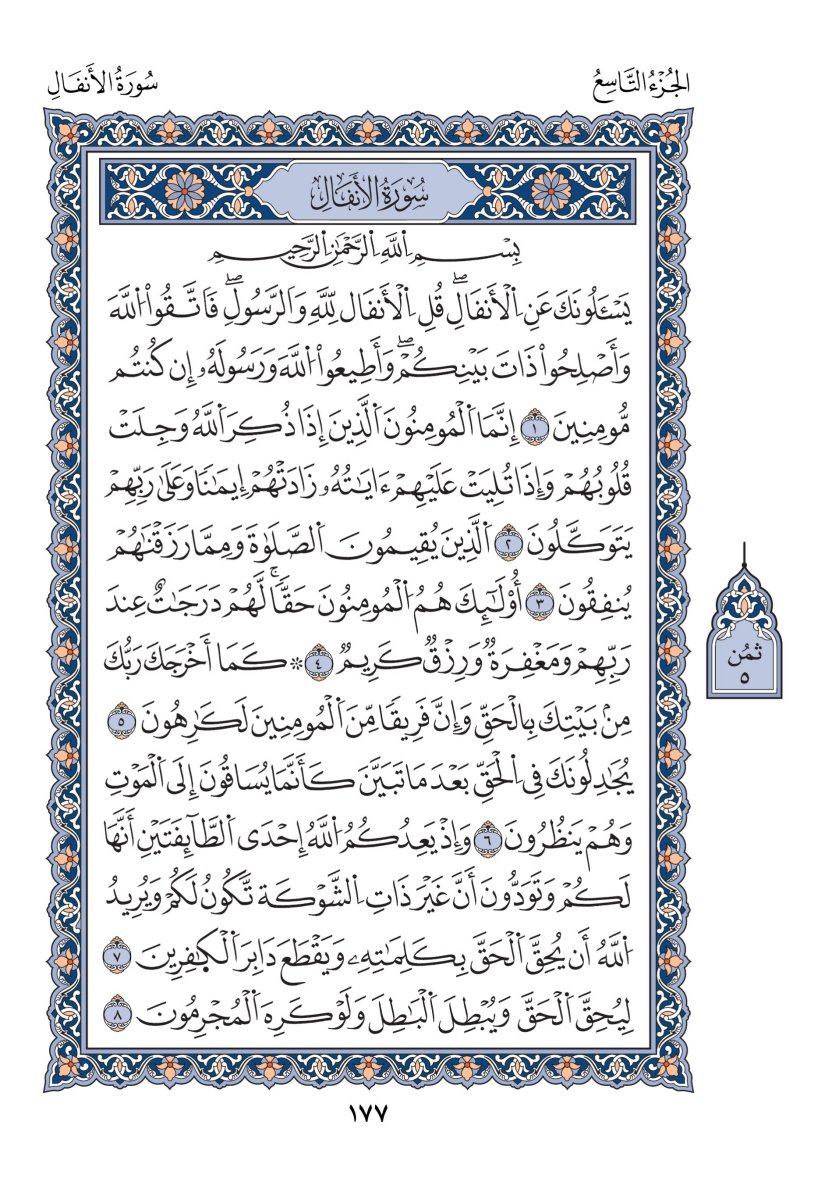 الجُزْءُ التَّاسِعُ
سُورَةُ الأَنفَالِ
سُورَةُ الأَنفَالِ
بِسْمِ اِ۬للَّهِ اِ۬لرَّحْمَٰنِ اِ۬لرَّحِيمِ
يَسْـَٔلُونَكَ عَنِ اِ۬لْأَنفَالِۖ قُلِ اِ۬لْأَنفَال لِّلَّهِ وَالرَّسُولِۖ فَاتَّقُواْ اُ۬للَّهَ
وَأَصْلِحُواْ ذَاتَ بَيْنِكُمْۖ وَأَطِيعُواْ اُ۬للَّهَ وَرَسُولَهُۥ إِن كُنتُم
مُّومِنِينَ ١ إِنَّمَا اَ۬لْمُومِنُونَ اَ۬لَّذِينَ إِذَا ذُكِرَ اَ۬للَّهُ وَجِلَتْ
قُلُوبُهُمْ وَإِذَا تُلِيَتْ عَلَيْهِمْ ءَايَٰتُهُۥ زَادَتْهُمْ إِيمَٰنًا وَعَلَىٰ رَبِّهِمْ
يَتَوَكَّلُونَ ٢ اَ۬لَّذِينَ يُقِيمُونَ اَ۬لصَّلَوٰةَ وَمِمَّا رَزَقْنَٰهُمْ
يُنفِقُونَ ٣ أُوْلَٰٓئِكَ هُمُ اُ۬لْمُومِنُونَ حَقّٗاۚ لَّهُمْ دَرَجَٰتٌ عِندَ
رَبِّهِمْ وَمَغْفِرَةٞ وَرِزْقٞ كَرِيمٞ ٤ ۞ كَمَا أَخْرَجَكَ رَبُّكَ
مِنۢ بَيْتِكَ بِالْحَقِّ وَإِنَّ فَرِيقٗا مِّنَ اَ۬لْمُومِنِينَ لَكَٰرِهُونَ ٥
يُجَٰدِلُونَكَ فِي اِ۬لْحَقِّ بَعْدَ مَا تَبَيَّنَ كَأَنَّمَا يُسَاقُونَ إِلَى اَ۬لْمَوْتِ
وَهُمْ يَنظُرُونَ ٦ وَإِذْ يَعِدُكُمُ اُ۬للَّهُ إِحْدَى اَ۬لطَّآئِفَتَيْنِ أَنَّهَا
لَكُمْ وَتَوَدُّونَ أَنَّ غَيْرَ ذَاتِ اِ۬لشَّوْكَة تَّكُونُ لَكُمْ وَيُرِيدُ
اُ۬للَّهُ أَن يُحِقَّ اَ۬لْحَقَّ بِكَلِمَٰتِهِۦ وَيَقْطَعَ دَابِرَ اَ۬لْكٰفِرِينَ ٧
لِيُحِقَّ اَ۬لْحَقَّ وَيُبْطِلَ اَ۬لْبَٰطِلَ وَلَوْ كَرِهَ اَ۬لْمُجْرِمُونَ ٨
ثمُن
٥
١٧٧